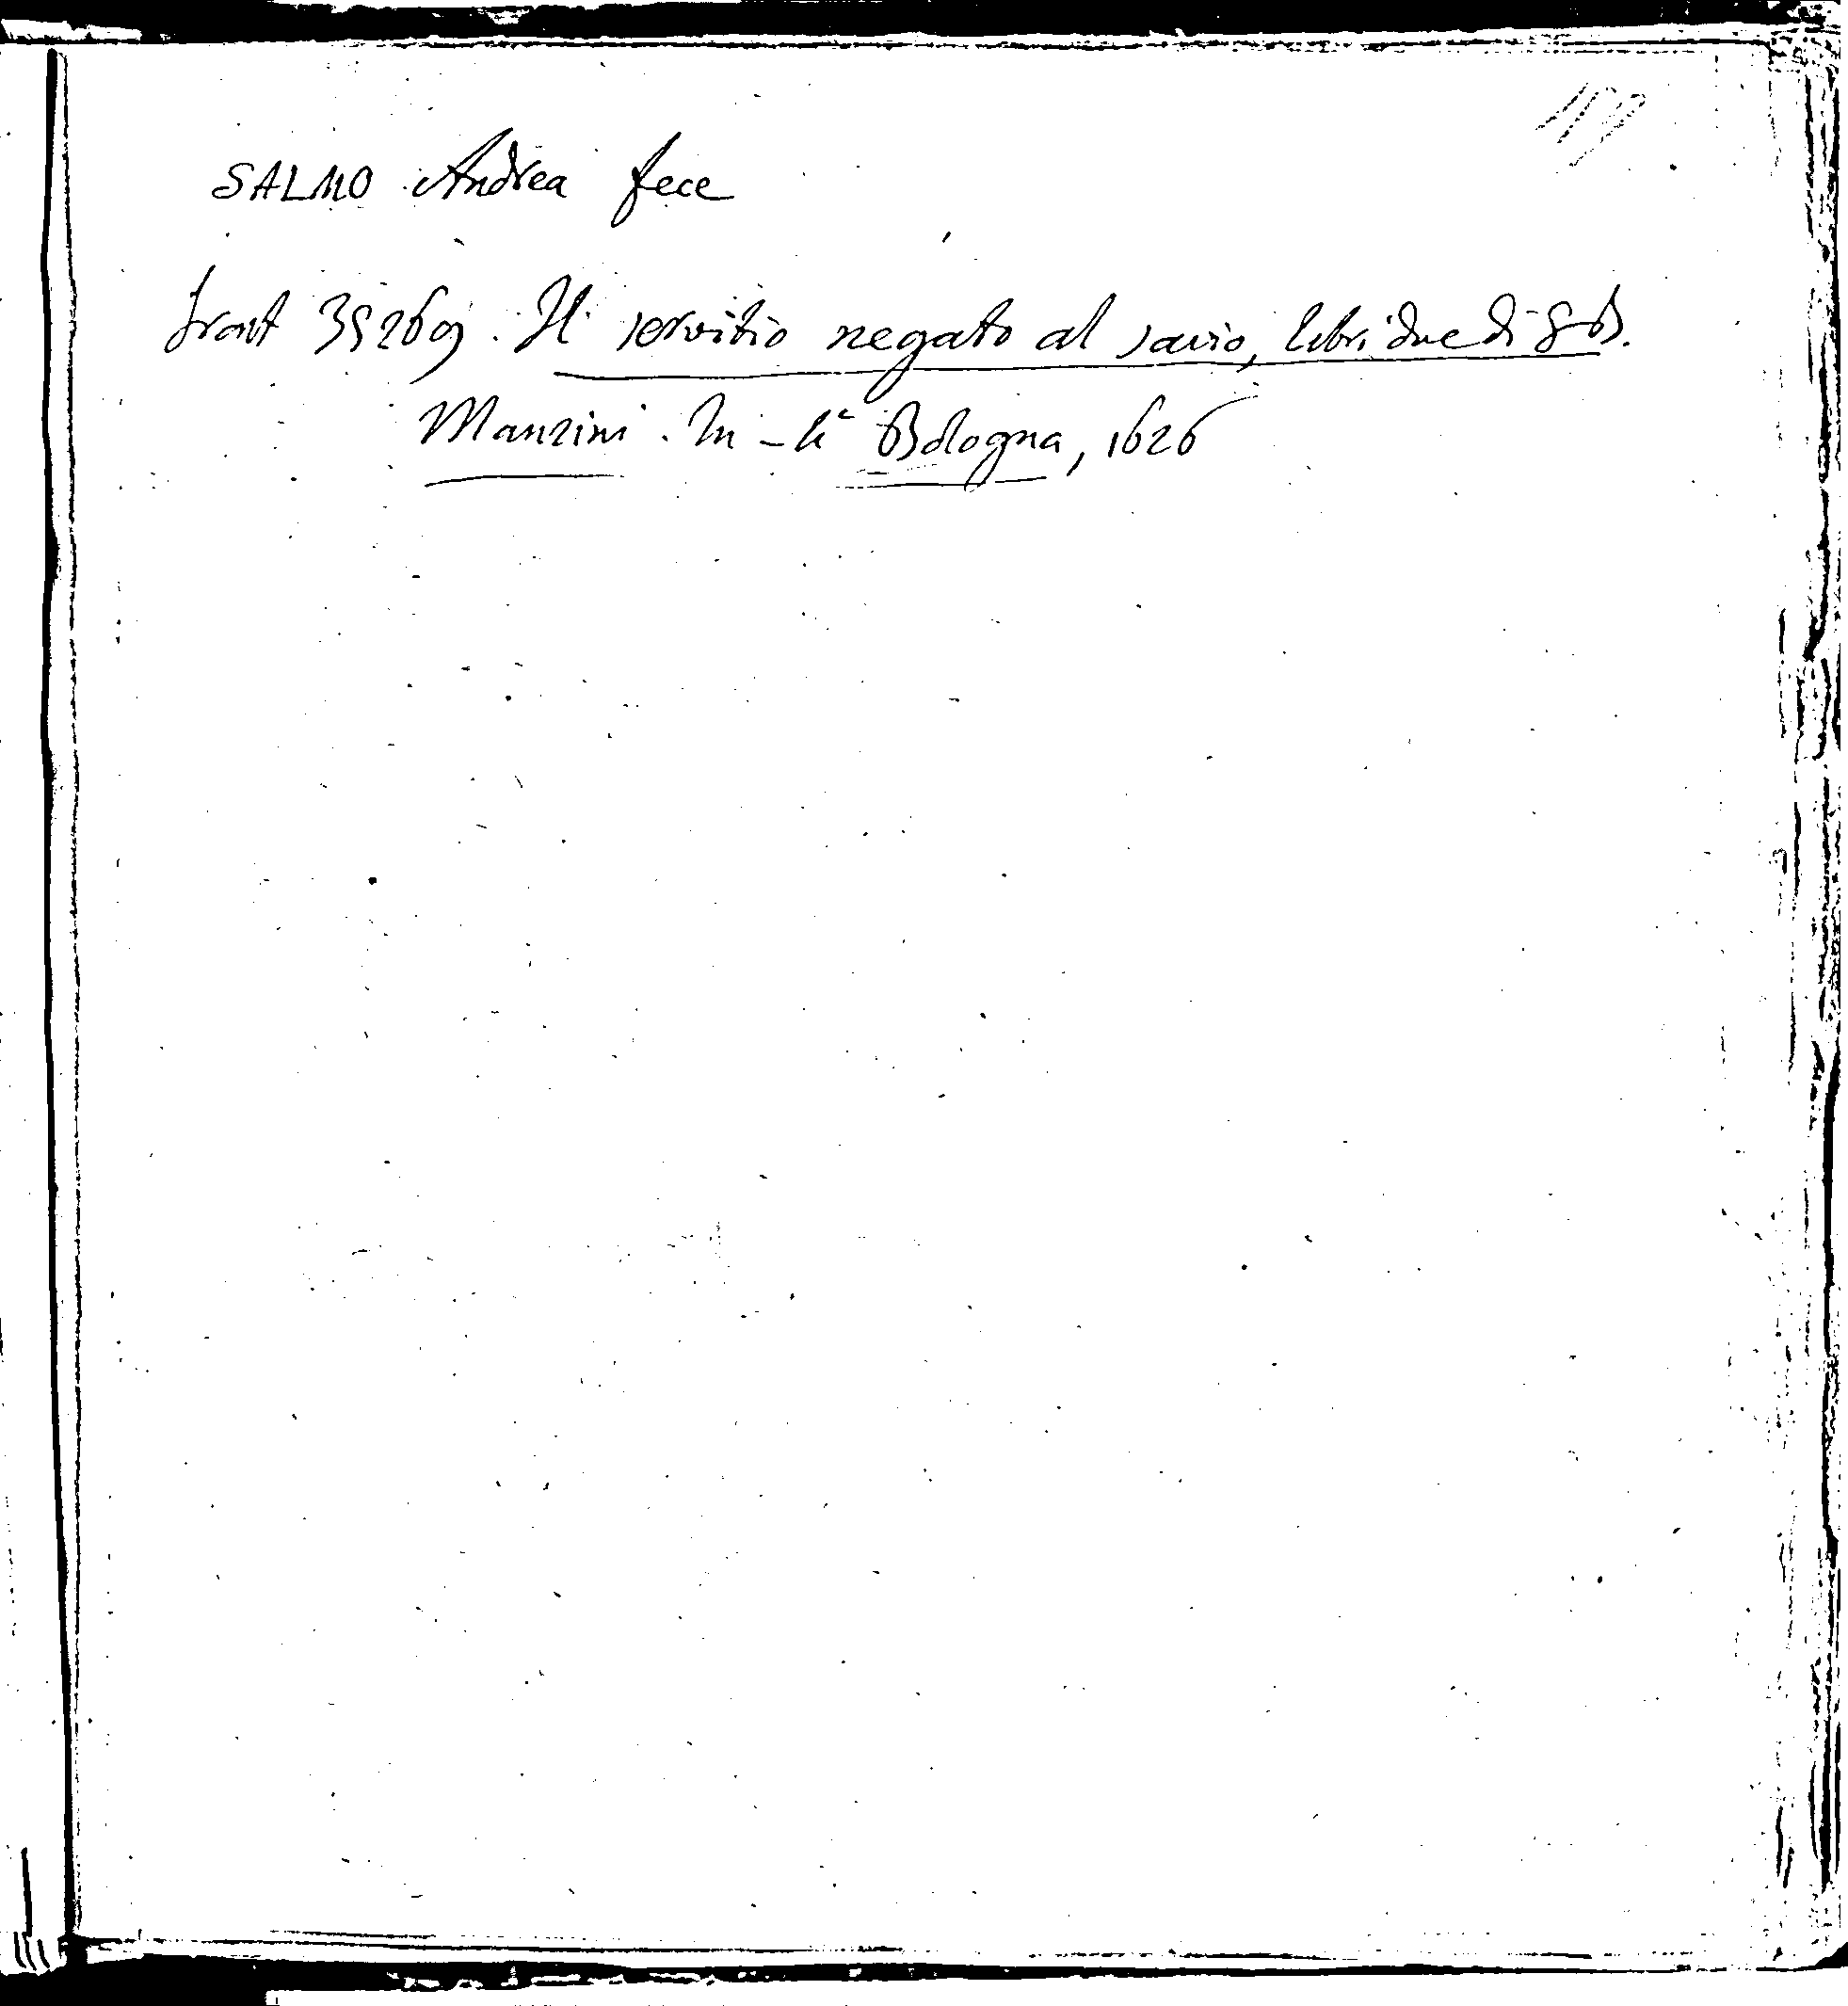 SALMO Andrea fece
front 35269. Il servitio negato al savio, libri due di G-B.
Manzini. In-4° Bologna, 1626